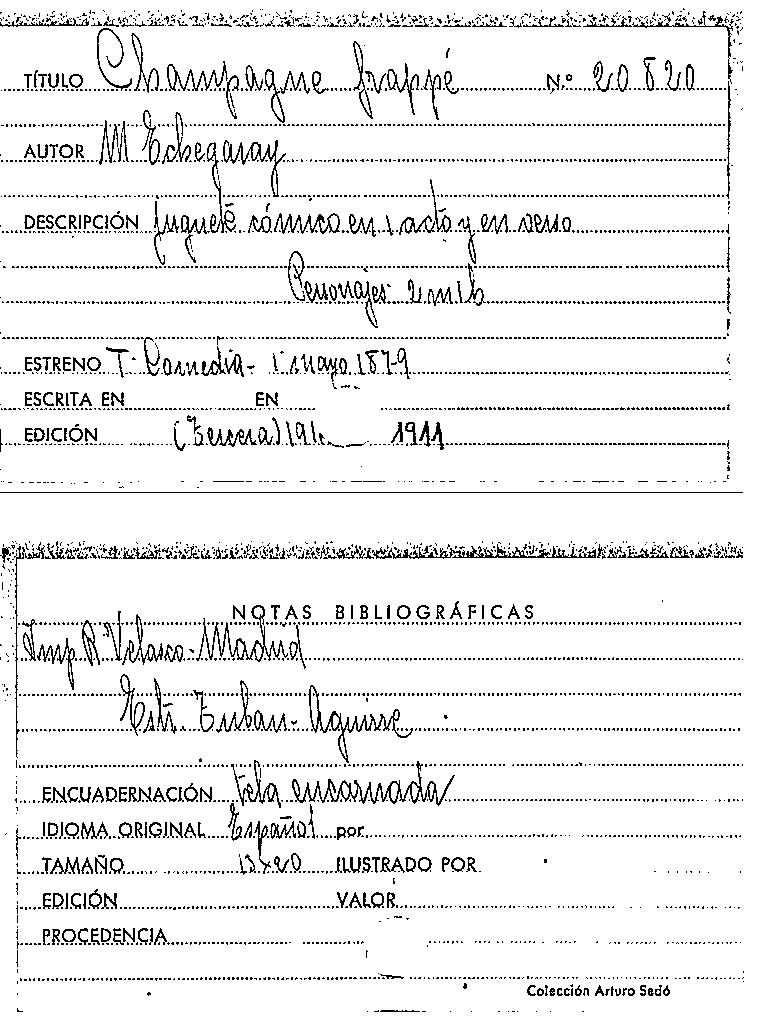 TÍTULO Champagne frappé N.º 20820
AUTOR M Echegaray
DESCRIPCIÓN juguete cómico en 1 acto y en verso
Personajes 2 m 1 h
ESTRENO T. Comedia - 1º mayo 1879
ESCRITA EN EN
EDICIÓN (Tercera) 1911
NOTAS BIBLIOGRÁFICAS
Imp R Velasco - Madrid
Estr. Aguirre
ENCUADERNACIÓN tela encarnada
IDIOMA ORIGINAL Español por
TAMAÑO 13x20 ILUSTRADO POR
EDICIÓN VALOR
PROCEDENCIA
Colección Arturo Sedó